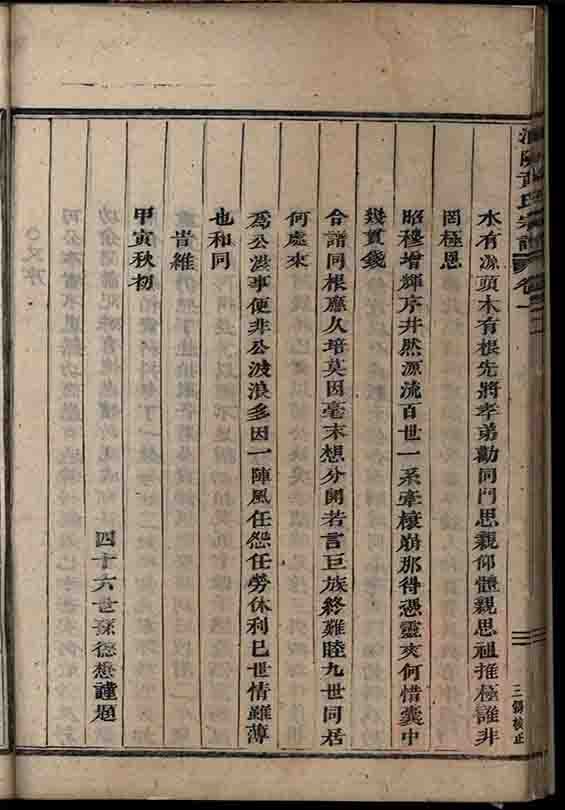 氏宗譜 卷一
水有源頭木有根先將孝弟勸同門思親仰體親思祖推極誰非
罔極恩
昭穆增輝序井然源流百世一系牽榱崩那得憑靈爽何惜囊中
幾貫錢
合譜同根應久培莫因毫末想分開若言巨族終難睦九世同居
何處來
為公濟事便非公波浪多因一陣風任怨任勞休利己世情雖薄
也和同
旹維
甲寅秋初
四十六世孫德懋謹題
三傳校正